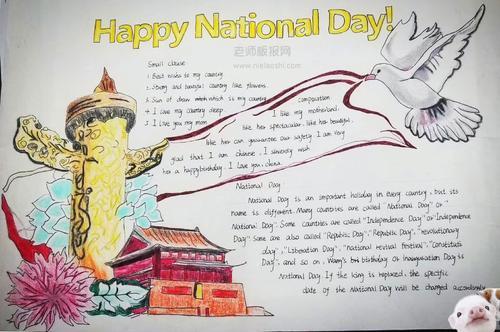 Happy National Day!
老师板报网
www.nielaoshi.com
Small clause
1. Best wishes to my country
2. Strong and beautiful country like flowers.
3. Sun of dream which is my country
4. I love my country deep
5. I love you my mom
composition
I like my motherland.
like her spectacular. like her beautiful.
like her can guarantee our safety. I am Very
glad that I am chinese. I sincerely wish
her a happy birthday. I love you, china.
National Day
National Day is an important holiday in every country, but its
name is different. Many countries are called "National Day" or "
National Day". Some countries are called "Independence Day" or "Independence
Day". Some are also called "Republic Day", "Republic Day", "revolutionary
day", "Liberation Day", "National revival festival", "Constitution
Day", and so on, birthday or inauguration Day is
National Day. If the king is replaced, the specific
date of the National Day will be changed accordingly